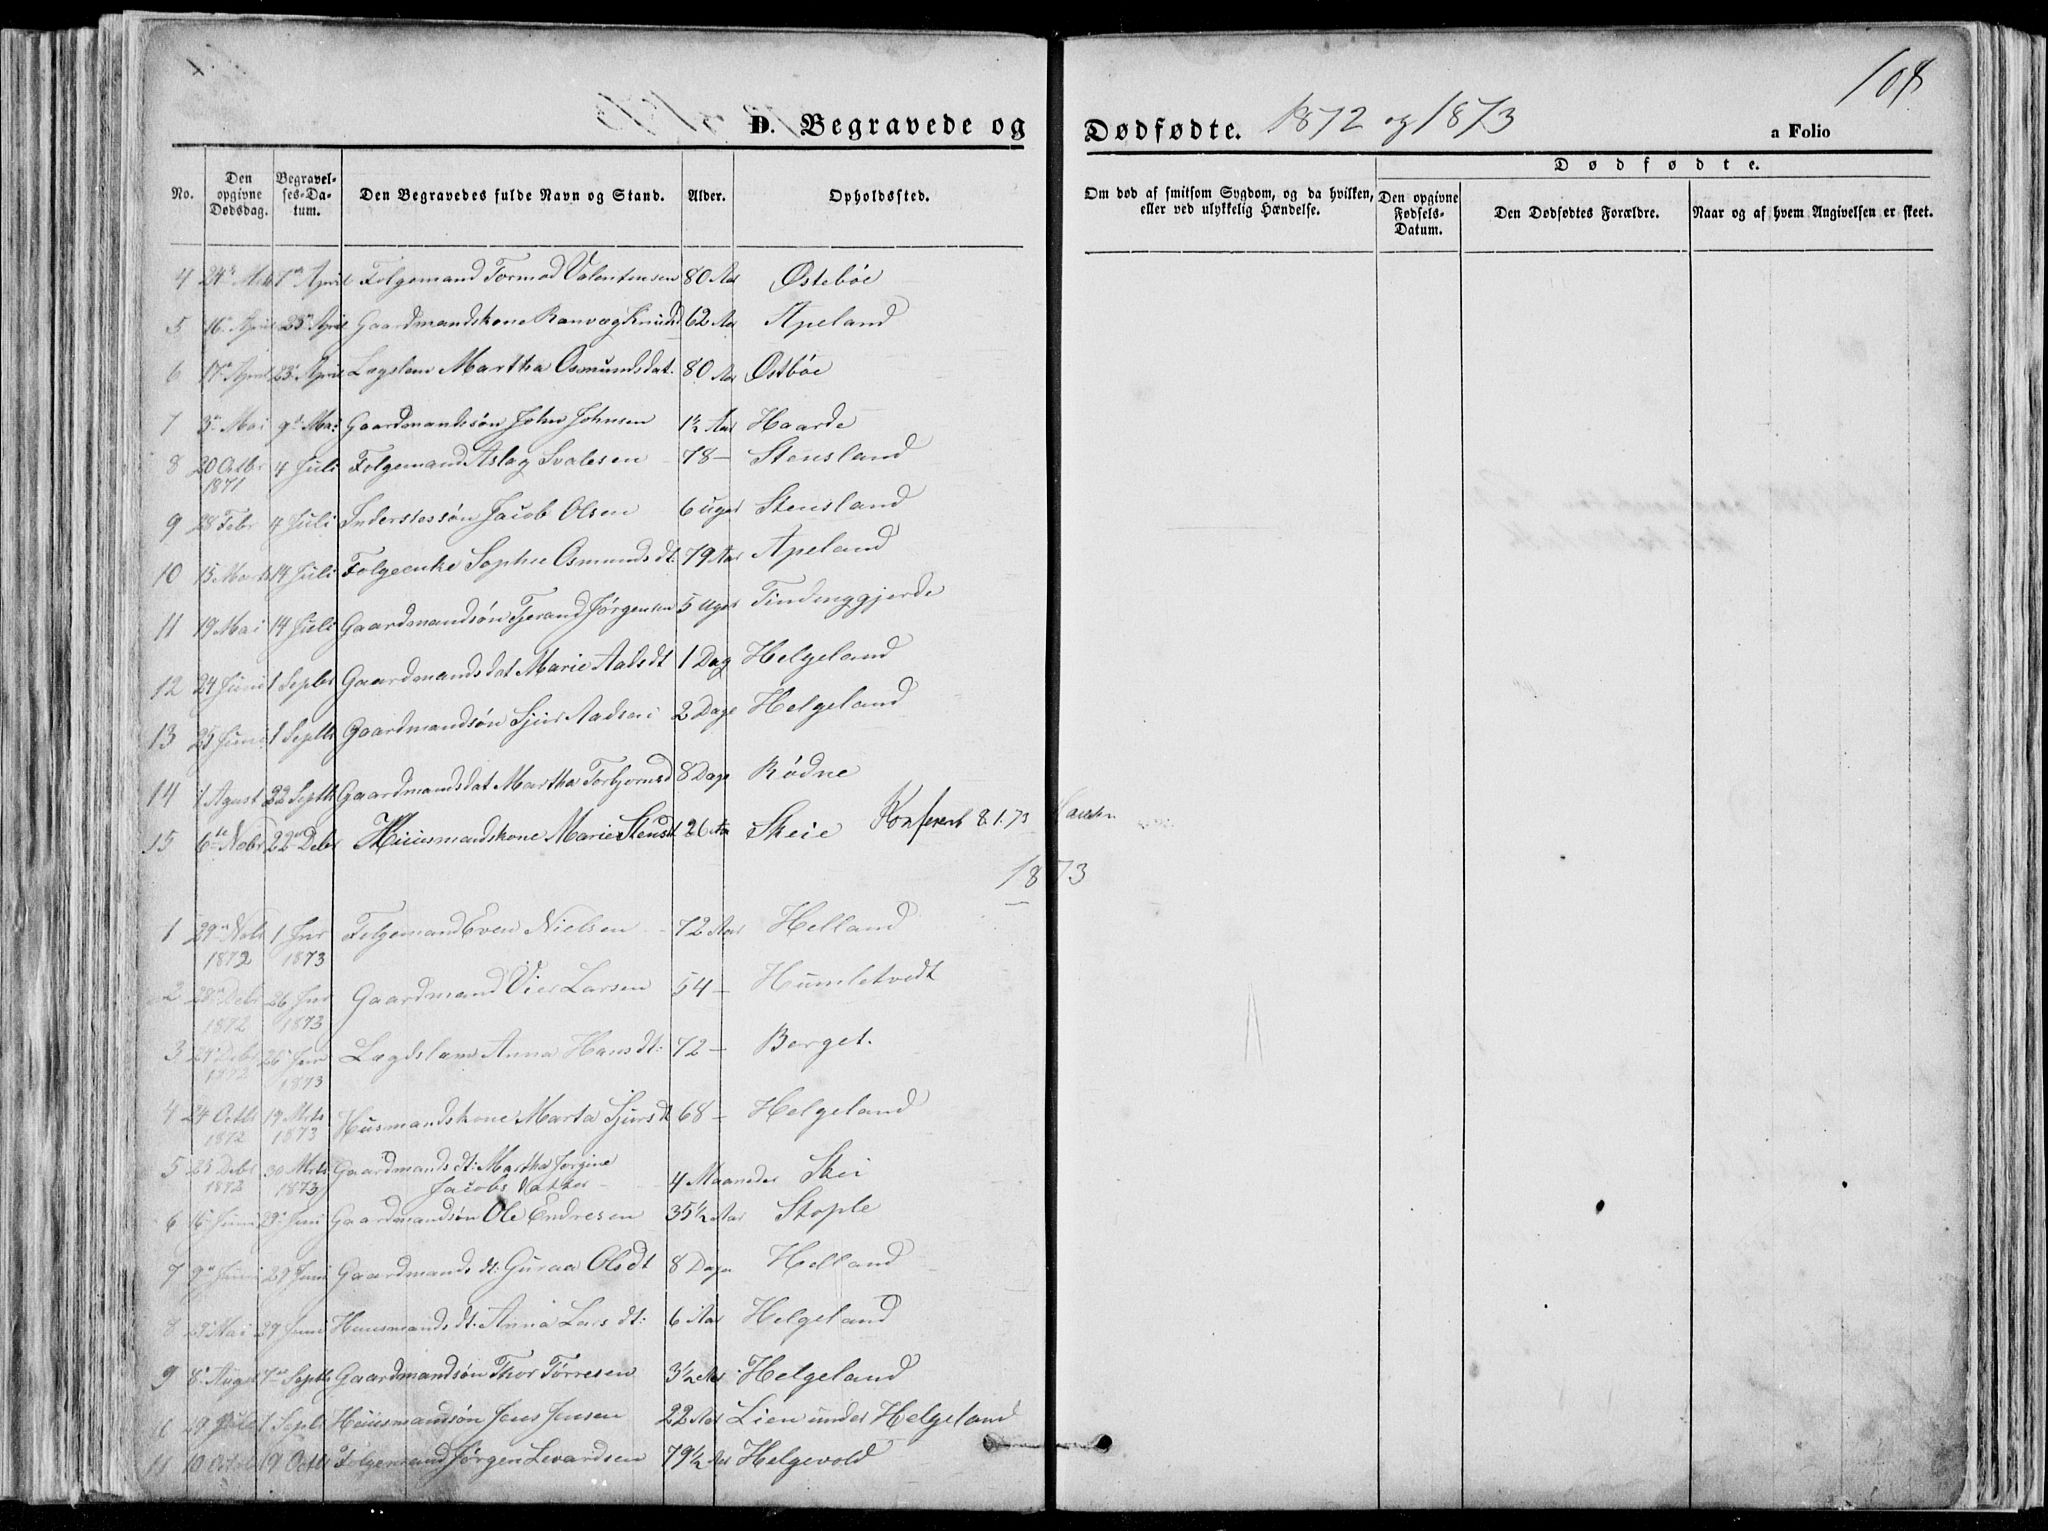 108
D. Begravede og Dødfødte. 1872 og 1873 a Folio
No. Den opgivne Dødsdag. Begravelses-Datum. Den Begravedes fulde Navn og Stand. Alder. Opholdssted. Om død af smitsom Sygdom, og da hvilken, eller ved ulykkelig Hændelse. Dødfødte. Den opgivne Fødsels-Datum. Den Dødfødtes Forældre. Naar og af hvem Angivelsen er skeet.
4 24de Mts 7de April Folgemand Tormod Valentinsen 80 Aar Østebøe
5 16de April 23de April Gaardmandskone Ranvæg Knudsd 62 Aar Apeland
6 17de April 23de April Lægslem Martha Osmundsdat. 80 Aar Østbøe
7 3de Mai 9de Mai Gaardmandssøn John Johnsen 1½ Aar Haarde
8 20 Octbr 1871 4 Juli Folgemand Aslag Svalesen 78 – Stensland
9 28 Febr 4 Juli Inderstessøn Jacob Olsen 6 uger Stensland
10 15 Marts 14 Juli Folgeenke Sophie Osmundsdt: 79 Aar Apeland
11 19 Mai 14 Juli Gaardmandsøn Tjerand Jørgensen 5 Uger Tindenggjerde
12 24 Juni 1 Septbr Gaardmandsdat Marie Aadsdt 1 Dag Helgeland
13 25 Juni 1 Septbr Gaardmandsøn Sjur Aadsen 2 Dage Helgeland
14 1 Agust 22 Septbr Gaardmandsdat Martha Torbjornsd 8 Dage Rødne
15 6te Nobr 22de Debr Huusmandskone Marie Stensdt 26 Aar Skeie Konfereret 8.1.73
1873
1 29de Nobr 1872 1 Jnr 1873 Folgemand Even Nielsen 72 Aar Helland
2 28de Debr 1872 26 Jnr 1873 Gaardmand Vier Larsen 54 – Humletvedt
3 24 Debr 1872 26 Jnr 1873 Lægdslem Anna Hansdt: 72 – Berget.
4 24 Octbr 1872 19 Mrts 1873 Husmandskone Marta Sjursdt 68 – Helgeland
5 25 Debr 1872 30 Mrts 1873 Gaardmandsdt: Martha Jorgine Jacobs Datter 4 Maaneder Skei
6 16 Juni 29 Juni Gaardmandsøn Ole Endresen 35½ Aar Stople
7 9de Juni 29 Juni Gaardmandsdt: Guraa Olsdt 8 Dage Helland
8 29 Mai 29 Juni Huusmandsdt: Anna Larsdt: 6 Aar Helgeland
9 8 Augst 7de Septbr Gaardmandsøn Thor Tørresen 3½ Aar Helgeland
29 Juli 1 Septbr Huusmandsøn Jens Jensen 22 Aar Lien under Helgeland
11 10 Octobr 19 Octbr Folgemand Jørgen Levardsen 79½ Aar Helgevold